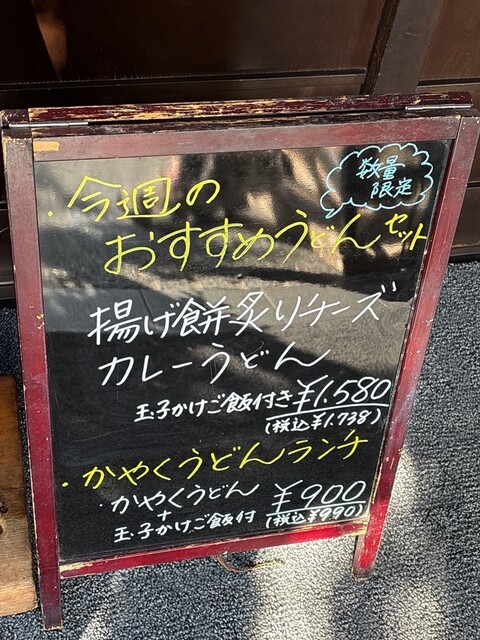 数量
限定
・今週の
おすすめうどんセット
揚げ餅炙りチーズ
カレーうどん
玉子かけご飯付き ¥1.580
(税込¥1.738)
・かやくうどんランチ
・かやくうどん ¥900
+
玉子かけご飯付 (税込¥990)